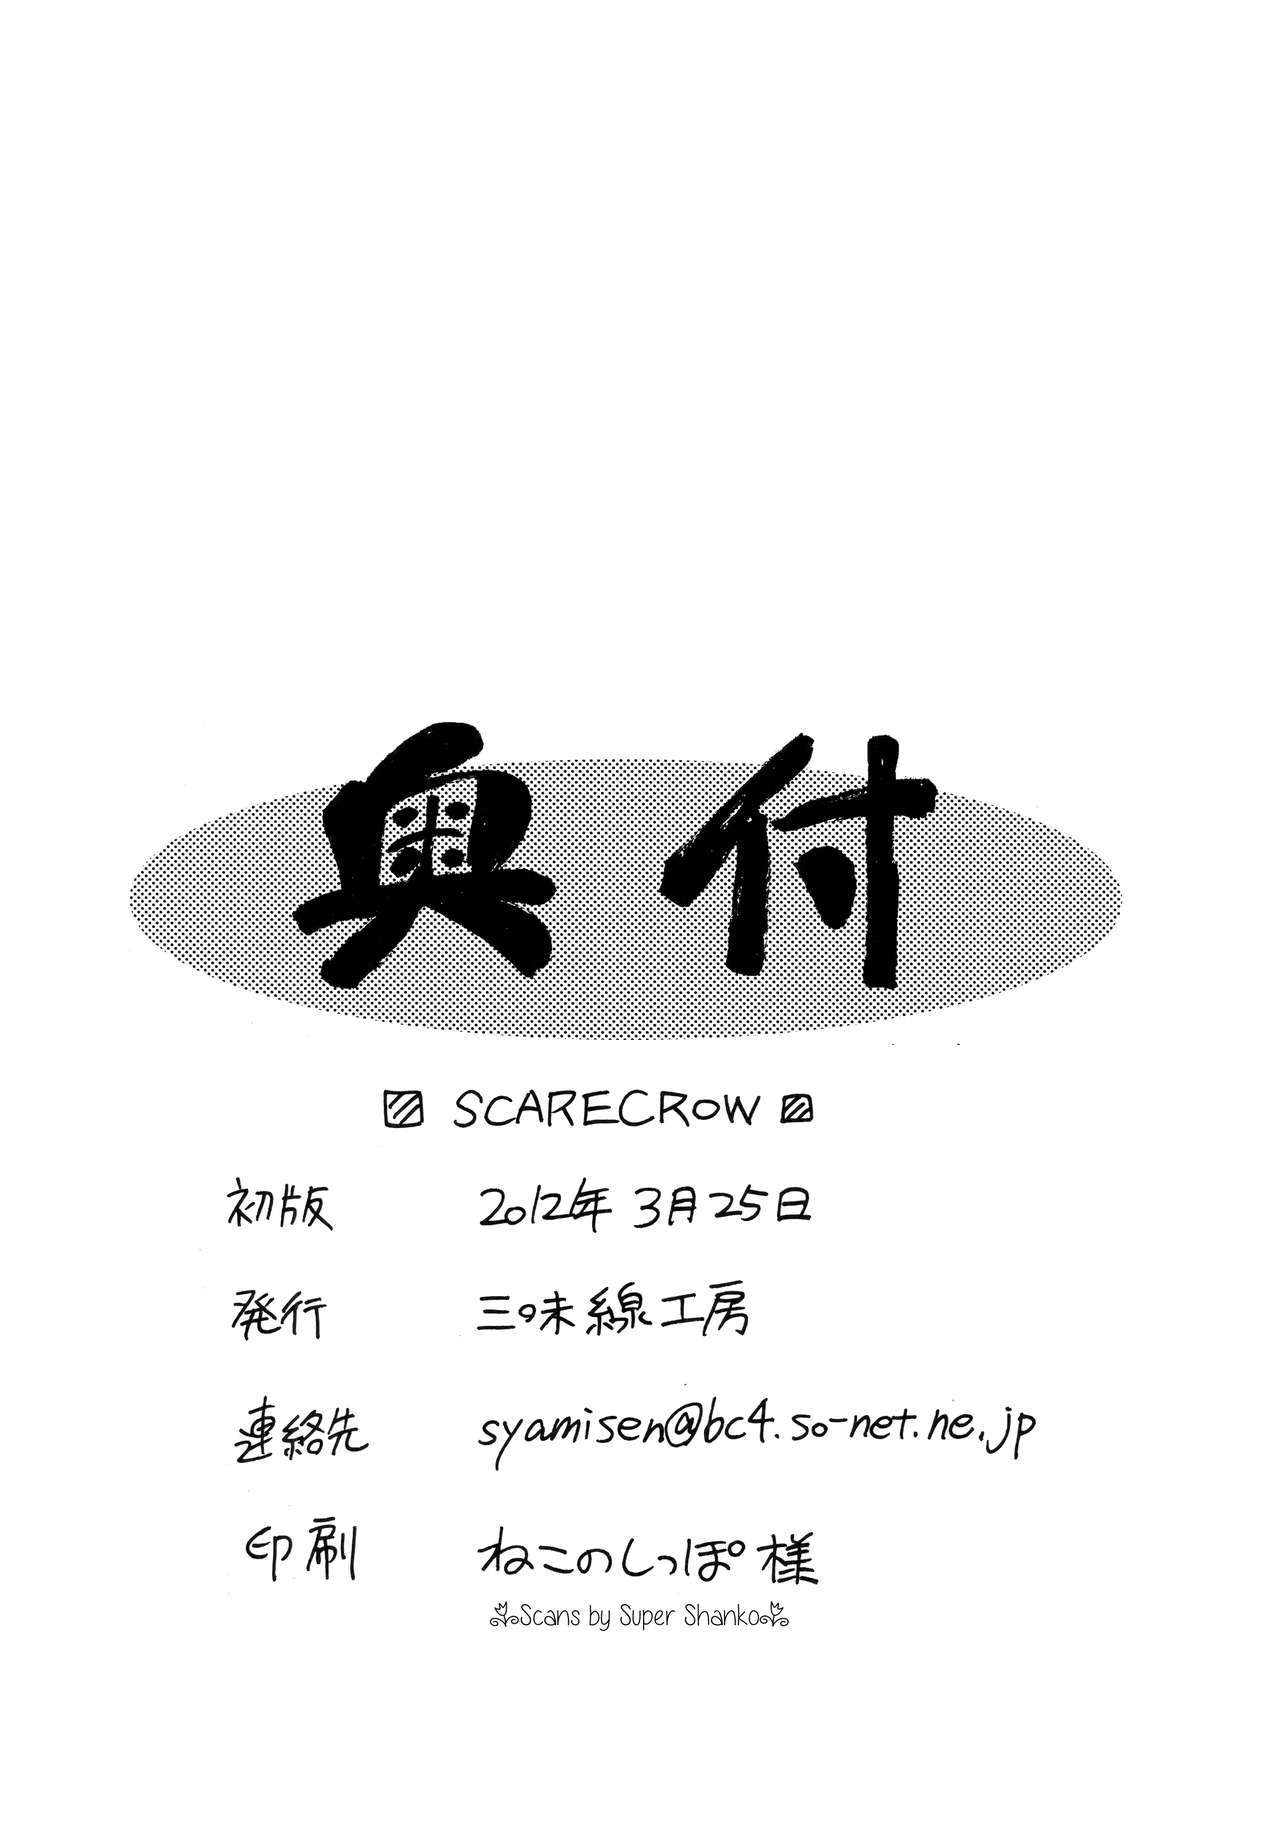 奥付
▨ SCARECROW ▨
初版 2012年 3月25日
発行 三味線工房
連絡先 syamisen@bc4.so-net.ne.jp
印刷 ねこのしっぽ 様
Scans by Super Shanko